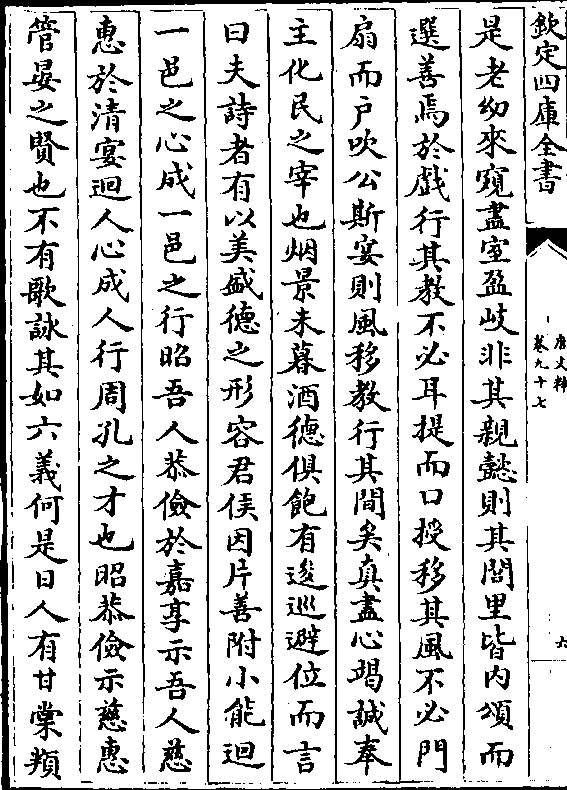 欽定四庫全書
唐文粹
卷九十七
六
是老幼來窺盡室盈岐非其親懿則其閭里皆内頌而
選善焉於戲行其教不必耳提而口授移其風不必門
扇而户吹公斯宴則風移教行其間矣真盡心竭誠奉
主化民之宰也烟景未暮酒德俱飽有逡巡避位而言
曰夫詩者有以美盛德之形容君侯因片善附小能迴
一邑之心成一邑之行昭吾人恭儉於嘉享示吾人慈
惠於清宴迴人心成人行周孔之才也昭恭儉示慈惠
管晏之賢也不有歌詠其如六義何是日人有甘棠類